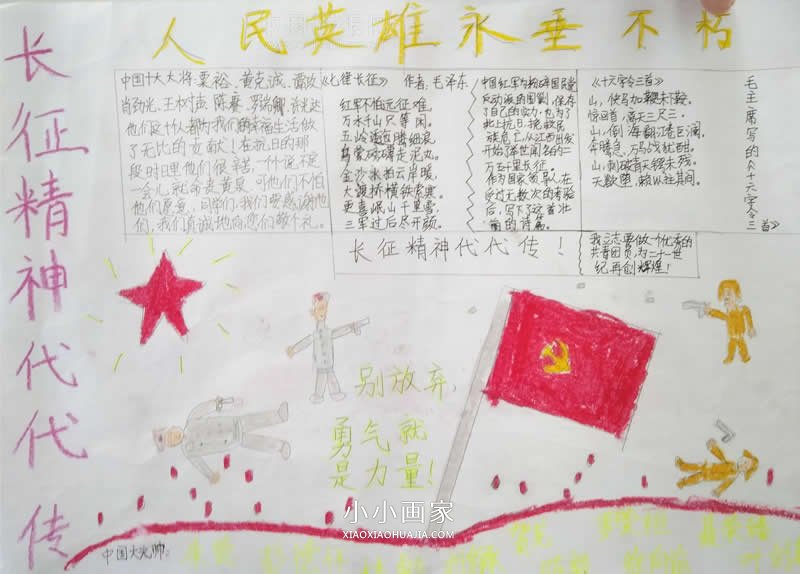 人民英雄永垂不朽
长征精神代代传
中国十大大将：粟裕、黄克诚、谭政
肖劲光、王树声、陈赓、罗瑞卿、许光达
他们是十人都为我们的幸福生活做
了无比的贡献！在抗日的那
段时日里他们很辛苦，一什说不定
一会儿就命丧黄泉，可他们不怕
他们愿意，同学们，我们要感谢他
们，我们真诚地向您们敬个礼。
《七律长征》 作者：毛泽东
红军不怕远征难，
万水千山只等闲。
五岭逶迤腾细浪，
乌蒙磅礴走泥丸。
金沙水拍云岸暖，
大渡桥横铁索寒。
更喜岷山千里雪，
三军过后尽开颜。
中国红军为粉碎国民党
反动派的围剿，保存
了自己的实力，也为了
北上抗日，挽救民
族危亡，从江西出发
开始了举世闻名的二
万五千里长征。
作为国家领导人在
经过无数次的考验
后，写下了这首壮
丽的诗篇。
《十六字令三首》
山，快马加鞭未下鞍。
惊回首，离天三尺三。
山，倒海翻江卷巨澜。
奔腾急，万马战犹酣。
山，刺破青天锷未残。
天欲堕，赖以拄其间。
毛主席写的《十六字令三首》
长征精神代代传！
我立志要做一个优秀的
共青团员，为二十一世
纪再创辉煌！
别放弃，
勇气就
是力量！
小小画家
XIAOXIAOHUAJIA.COM
中国十大元帅：